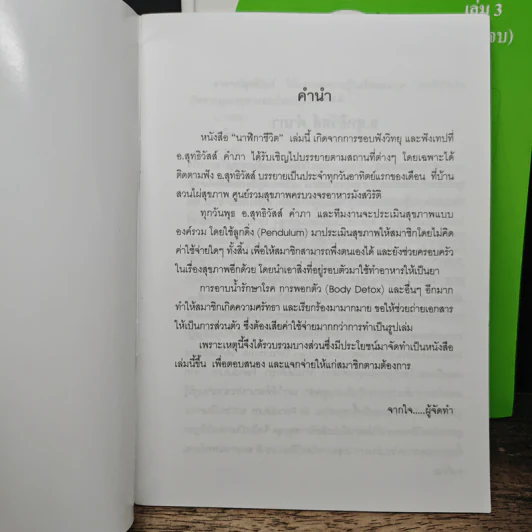 เล่ม 3
อบ)
คำนำ
หนังสือ "นาฬิกาชีวิต" เล่มนี้ เกิดจากการชอบฟังวิทยุ และฟังเทปที่
อ.สุทธิวัสส์ คำภา ได้รับเชิญไปบรรยายตามสถานที่ต่างๆ โดยเฉพาะได้
ติดตามฟัง อ.สุทธิวัสส์ บรรยายเป็นประจำทุกวันอาทิตย์แรกของเดือน ที่บ้าน
สวนไผ่สุขภาพ ศูนย์รวมสุขภาพครบวงจรอาหารมังสวิรัติ
ทุกวันพุธ อ.สุทธิวัสส์ คำภา และทีมงานจะประเมินสุขภาพแบบ
องค์รวม โดยใช้ลูกดิ่ง (Pendulum) มาประเมินสุขภาพให้สมาชิกโดยไม่คิด
ค่าใช้จ่ายใดๆ ทั้งสิ้น เพื่อให้สมาชิกสามารถพึ่งตนเองได้ และยังช่วยครอบครัว
ในเรื่องสุขภาพอีกด้วย โดยนำเอาสิ่งที่อยู่รอบตัวมาใช้ทำอาหารให้เป็นยา
การอาบน้ำรักษาโรค การพอกตัว (Body Detox) และอื่นๆ อีกมาก
ทำให้สมาชิกเกิดความศรัทธา และเรียกร้องมามากมาย ขอให้ช่วยถ่ายเอกสาร
ให้เป็นการส่วนตัว ซึ่งต้องเสียค่าใช้จ่ายมากกว่าการทำเป็นรูปเล่ม
เพราะเหตุนี้จึงได้รวบรวมบางส่วนซึ่งมีประโยชน์มาจัดทำเป็นหนังสือ
เล่มนี้ขึ้น เพื่อตอบสนอง และแจกจ่ายให้แก่สมาชิกตามต้องการ
จากใจ.....ผู้จัดทำ